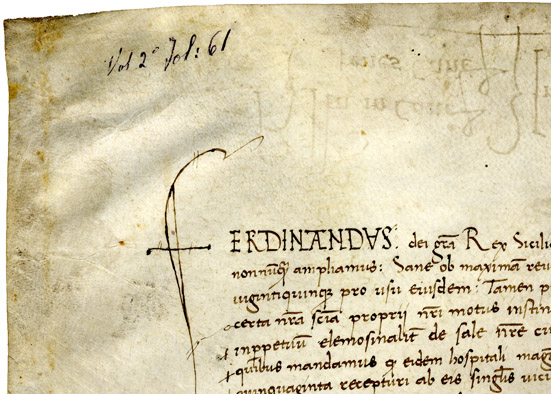 Vol 2° Fol: 61
FERDINANDVS: dei gr̄a Rex Sicili
ampliamus: Sane ob maximā reu
uigintiquinqȝ pro usu eiusdem: Tamen p
certa nr̄a sciā proprij nr̄i motus instin
inp̄petuū elemosinalit̄ de sale nr̄e cu
quibus mandamus q eidem hospitali mag
quinquaginta recepturi ab eis singlis uici